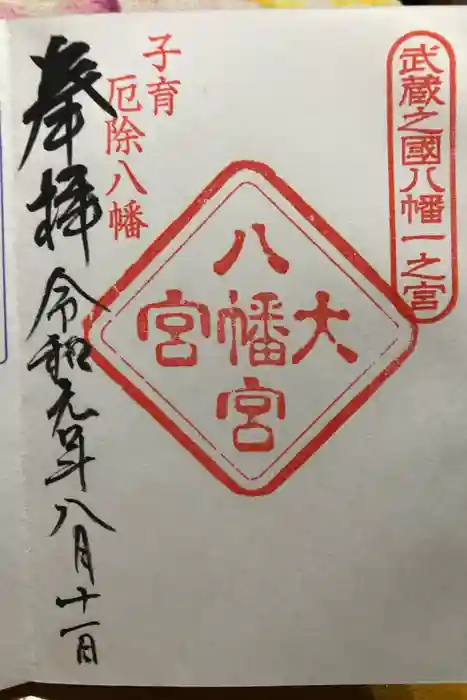 武蔵之國八幡一之宮
大宮
八幡宮
子育
厄除八幡
奉拝 令和元年八月十一日